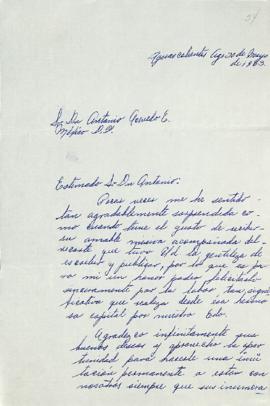 Aguascalientes Ags 30 de Mayo
de 1963.
Sr. Dn Antonio Acevedo E.
México D.F.
Estimado Sr. Dn Antonio.
Pocas veces me he sentido
tan agradablemente sorprendida co-
mo cuando tuve el gusto de recibir
su amable misiva acompañada del
recorte que tuvo Ud la gentileza de
escribir y publicar, por lo que es pa-
ra mi un honor poder felicitarlo
sinceramente por la labor tan signi-
ficativa que realiza desde esa hermo
sa capital por nuestro Edo.
Agradezco infinitamente sus
buenos deseos y aprovecho la opor
tunidad para hacerle una invi
tación permanente a estar con
nosotros siempre que sus